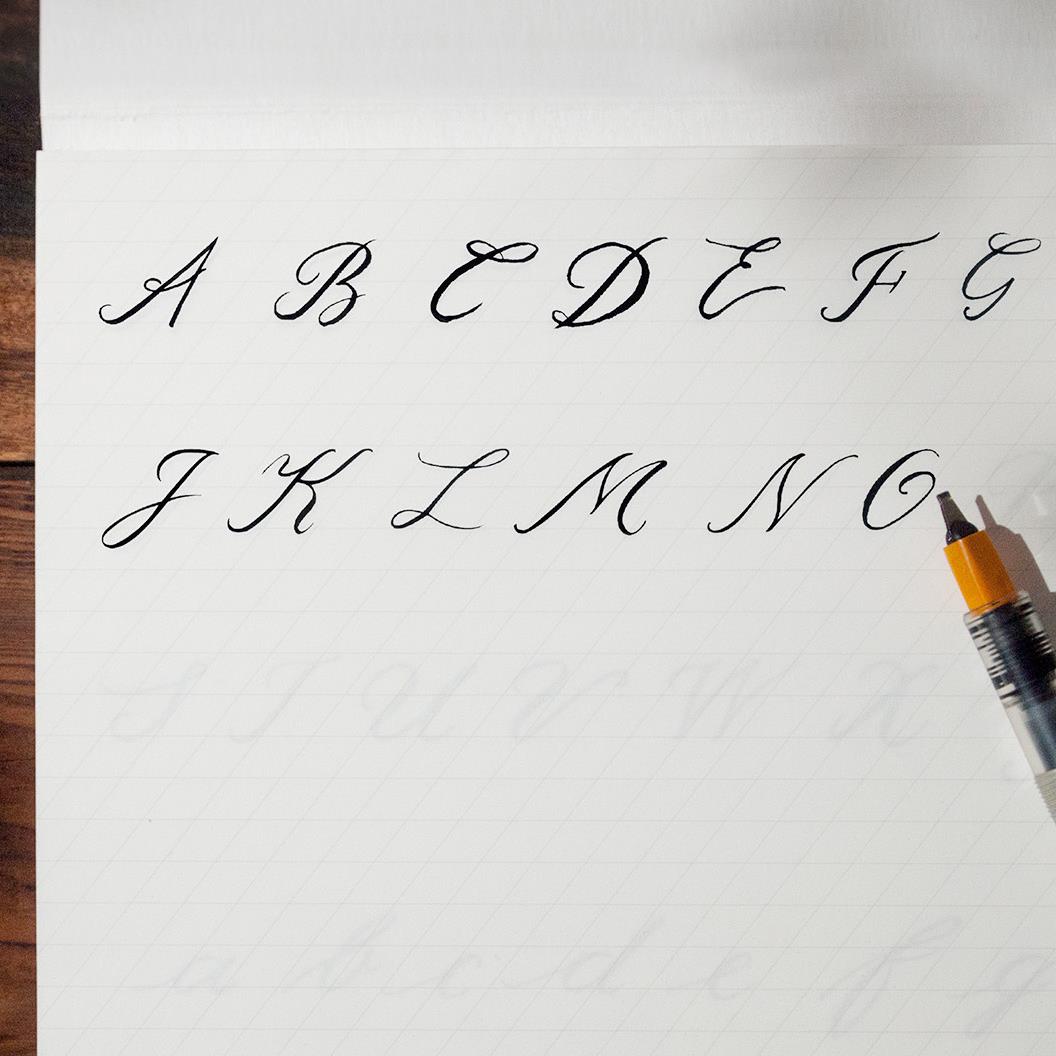 A B C D E F G
J K L M N O
S T U V W X
a b c d e f g